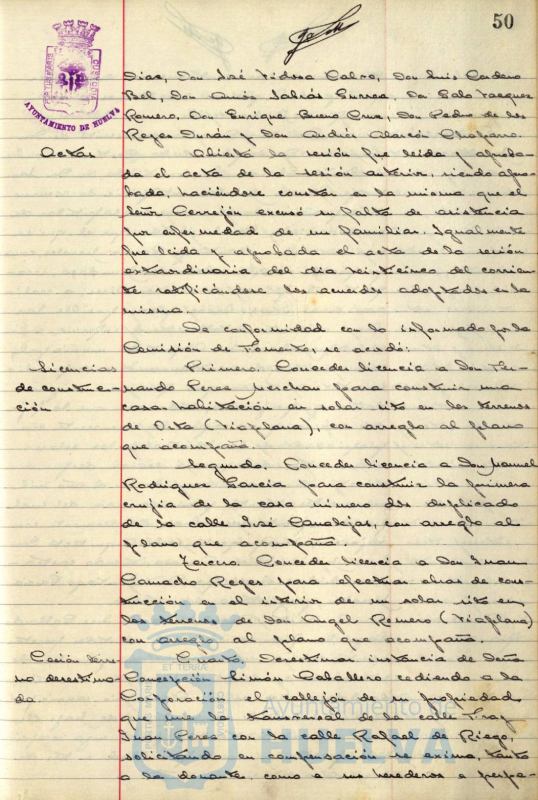 50
PORTUS MARIS ET TERRAE CUSTODIA
AYUNTAMIENTO DE HUELVA
Días, Don José Tidosa Calvo, Don Luis Cordero
Bel, Don Amós Sabrás Gurrea, Don Galo Vazquez
Romero, Don Enrique Bueno Cruz, Don Pedro de los
Reyes Durán y Don Andrés Alarcón Chaparro.
Actas
Abierta la sesión fue leida y aproba-
da el acta de la sesión anterior, siendo apro-
bada, haciéndose constar en la misma que el
Señor Cerrejón excusó su falta de asistencia
por enfermedad de un familiar. Igualmente
fue leida y aprobada el acta de la sesión
extraordinaria del dia veinticinco del corrien-
te ratificándose los acuerdos adoptados en la
misma.
De conformidad con lo informado por la
Comisión de Fomento, se acordó:
Licencias
de construc-
ción
Primero. Conceder licencia a Don Fer-
nando Perea Merchan para construir una
casa habitación en solar sito en los terrenos
de Orta (Viaplana), con arreglo al plano
que acompaña.
Segundo. Conceder licencia a Don Manuel
Rodriguez Garcia para construir la primera
crujia de la casa número dos duplicado
de la calle José Canalejas, con arreglo al
plano que acompaña.
Tercero. Conceder licencia a Don Juan
Camacho Reyes para efectuar obras de cons-
trucción en el interior de un solar sito en
los terrenos de Don Angel Romero (Viaplana)
con arreglo al plano que acompaña.
Cesión terre-
no desestima-
da
Cuarto. Desestimar instancia de Doña
Concepción Limón Caballero cediendo a la
Corporación el callejón de su propiedad
que une la transversal de la calle Fray
Juan Perez con la calle Rafael de Riego,
solicitando en compensación se exima, tanto
a la donante, como a sus herederos a perpe-
ET TERRA
Ayuntamiento de
HUELVA